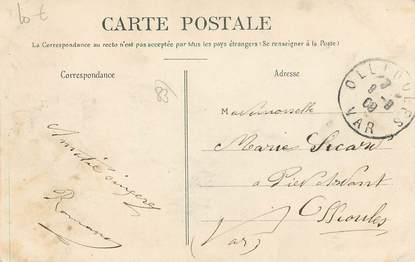 10 €
CARTE POSTALE
La Correspondance au recto n'est pas acceptée par tous les pays étrangers (Se renseigner à la Poste)
Correspondance
Adresse
83
OLLIOULES
VAR
Mademoiselle
Marie Sicard
a
Ollioules
(Var)
Amitié sincère
Romano